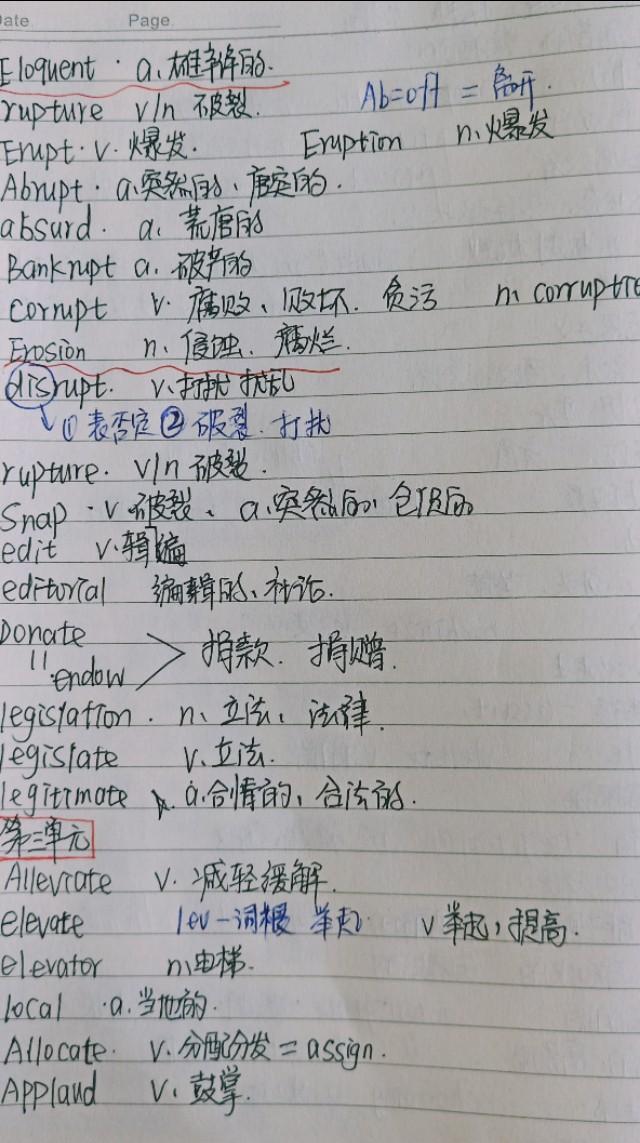 Date Page
Eloquent · a. 雄辩的.
rupture v/n 破裂. Ab=off = 离开.
Erupt · v. 爆发. Eruption n. 爆发
Abrupt · a. 突然的、唐突的.
absurd · a. 荒唐的
Bankrupt a. 破产的
corrupt v. 腐败、败坏. 贪污 n. corruptio
Erosion n. 侵蚀. 腐烂.
disrupt. v. 打扰 扰乱
① 表否定 ② 破裂. 打扰
rupture. v/n 破裂.
Snap · v. 破裂、 a. 突然的,仓促的
edit v. 辑编
editorial 编辑的、社论.
Donate
捐款. 捐赠.
|| endow
legislation. n. 立法、法律.
legislate v. 立法.
legitimate a. 合情的, 合法的.
第三单元
Alleviate v. 减轻缓解.
elevate lev-词根 举起. v 举起, 提高.
elevator n. 电梯.
local · a. 当地的.
Allocate · v. 分配分发 = assign.
Applaud v. 鼓掌.